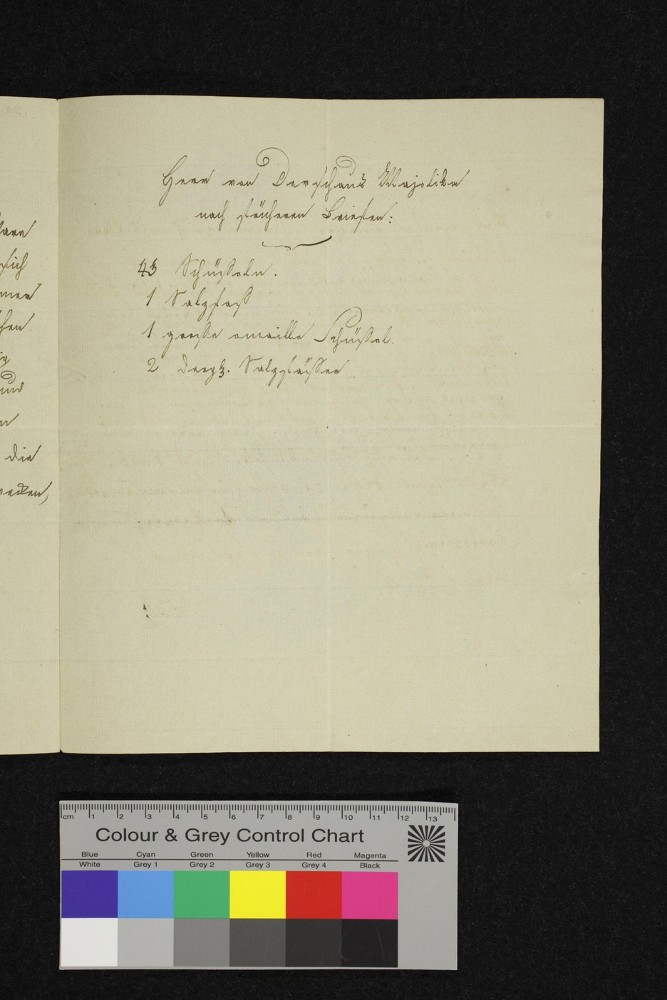 Herrn von Derschaus Majoliken
nach früheren Briefen:
43 Schüsseln.
1 Salzfaß
1 große emaille Schüssel.
2 dergl. Salzfässer
sich
und
die
cm 1 2 3 4 5 6 7 8 9 10 11 12 13
Colour & Grey Control Chart
Blue Cyan Green Yellow Red Magenta
White Grey 1 Grey 2 Grey 3 Grey 4 Black